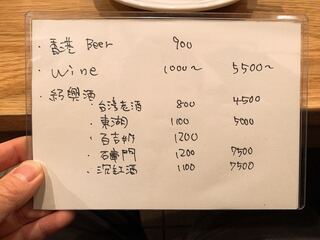 ・香港 Beer 900
・Wine 1000〜 5500〜
・紹興酒
・台湾老酒 800 4500
・東湖 1100 5000
・百吉納 1200
・石庫門 1200 7500
・沉缸酒 1100 7500